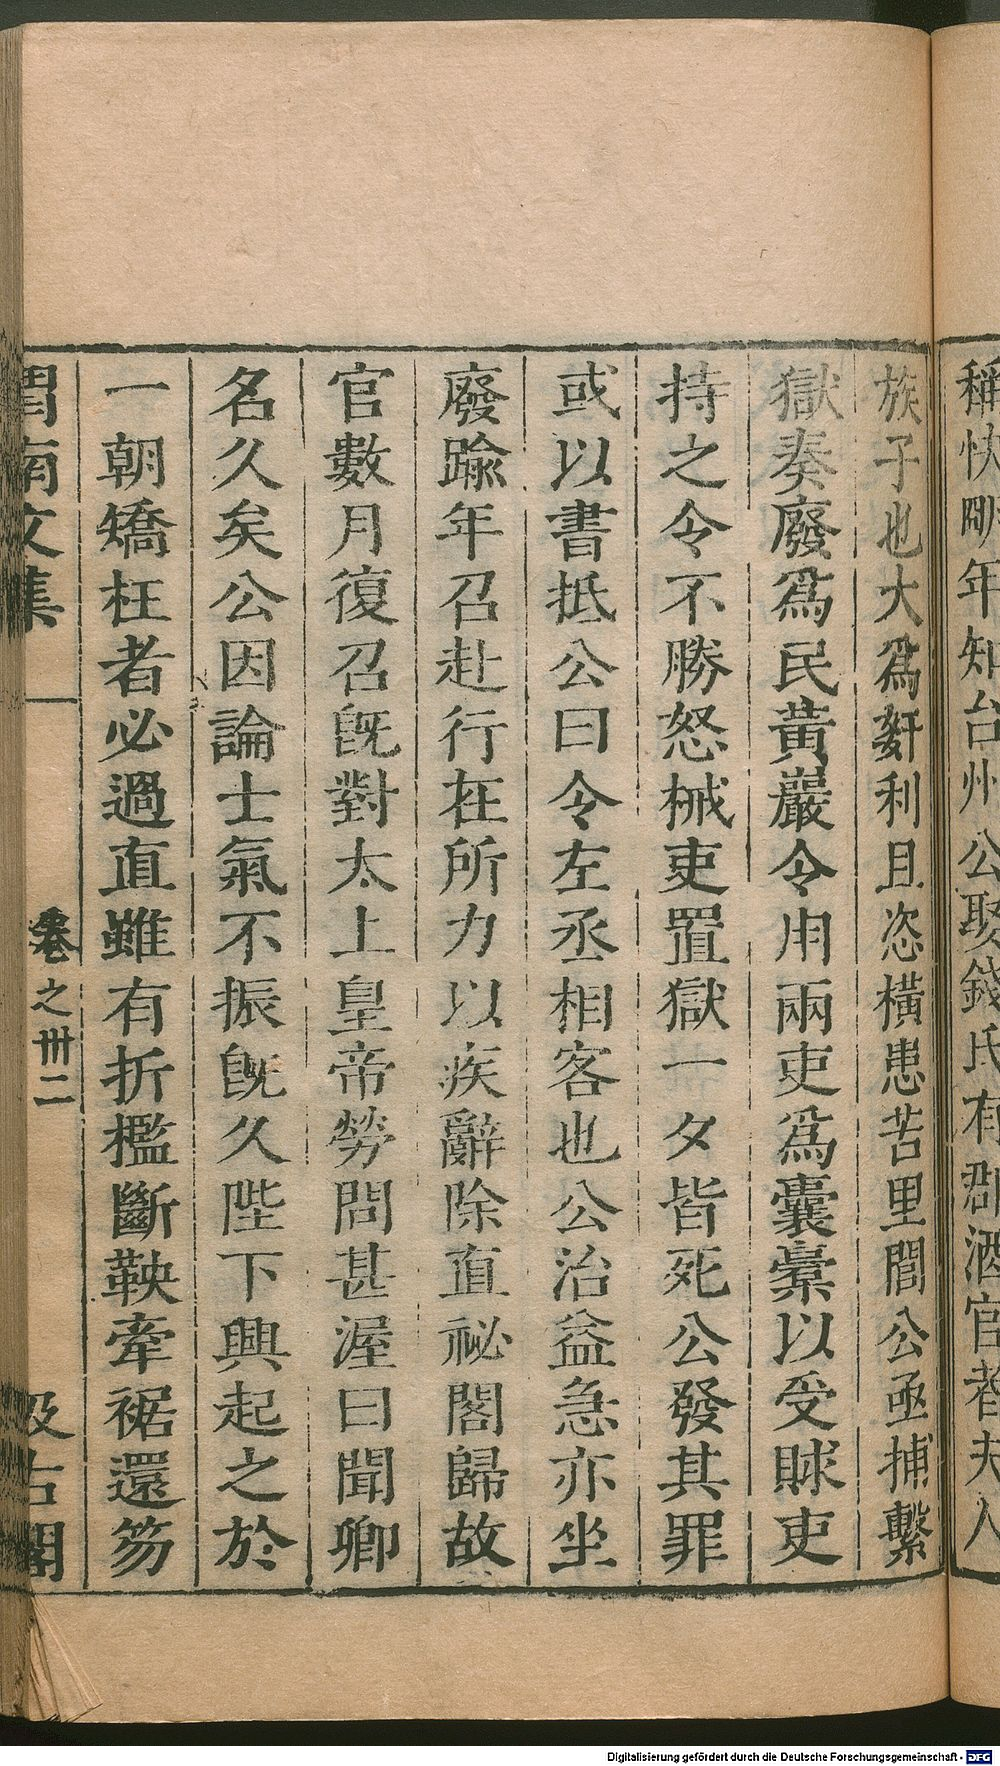 稱快明年知台州公娶錢氏有郡酒官者夫人
族子也大爲姧利且恣橫患苦里閭公亟捕繫
獄奏廢爲民黃巖令用兩吏爲囊橐以受賕吏
持之令不勝怒械吏置獄一夕皆死公發其罪
或以書抵公曰令左丞相客也公治益急亦坐
廢踰年召赴行在所力以疾辭除直祕閣歸故
官數月復召旣對太上皇帝勞問甚渥曰聞卿
名久矣公因論士氣不振旣久陛下興起之於
一朝矯枉者必過直雖有折檻斷鞅牽裾還笏
渭南文集
卷之卅二
汲古閣
Digitalisierung gefördert durch die Deutsche Forschungsgemeinschaft - DFG